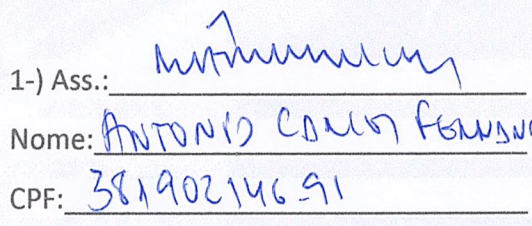 1-) Ass.:
Nome: ANTONIO CARLOS FERNAN
CPF: 381902146-91